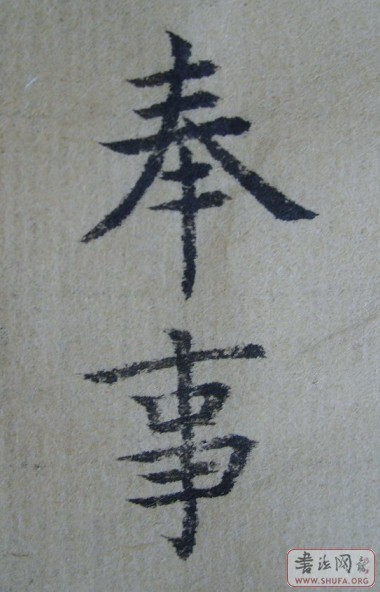 奉事
书法网
WWW.SHUFA.ORG